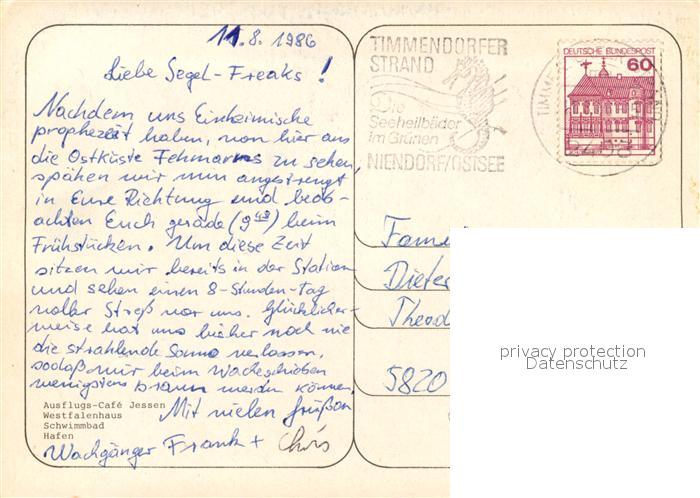 11.8.1986
Liebe Segel-Freaks!
Nachdem uns Einheimische
prophezeit haben, von hier aus
die Ostküste Fehmarns zu sehen,
spähen wir nun angestrengt
in Eure Richtung und beob-
achten Euch gerade (9⁴⁹) beim
Frühstücken. Um diese Zeit
sitzen wir bereits in der Station
und sehen einen 8-Stunden-tag
voller Streß vor uns. Glücklicher-
weise hat uns bisher noch nie
die strahlende Sonne verlassen,
sodaß wir beim Wacheschieben
wenigstens braun werden können.
Mit vielen Grüßen
Wachgänger Frank + Chris
Ausflugs-Café Jessen
Westfalenhaus
Schwimmbad
Hafen
TIMMENDORFER
STRAND
Die
Seeheilbäder
im Grünen
NIENDORF/OSTSEE
DEUTSCHE BUNDESPOST
60
TIMM
Fam
Dieter
Theod
5820
privacy protection
Datenschutz